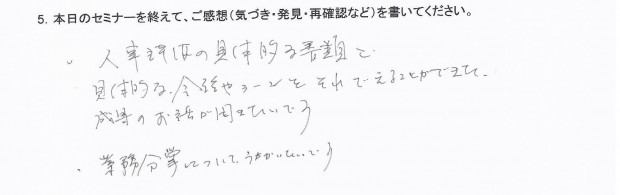 5. 本日のセミナーを終えて、ご感想（気づき・発見・再確認など）を書いてください。
・人事の具体的な書類で
具体的な、やをそれでることができた。
のお話が聞きたいです
・業務分掌について、うかがいたいです